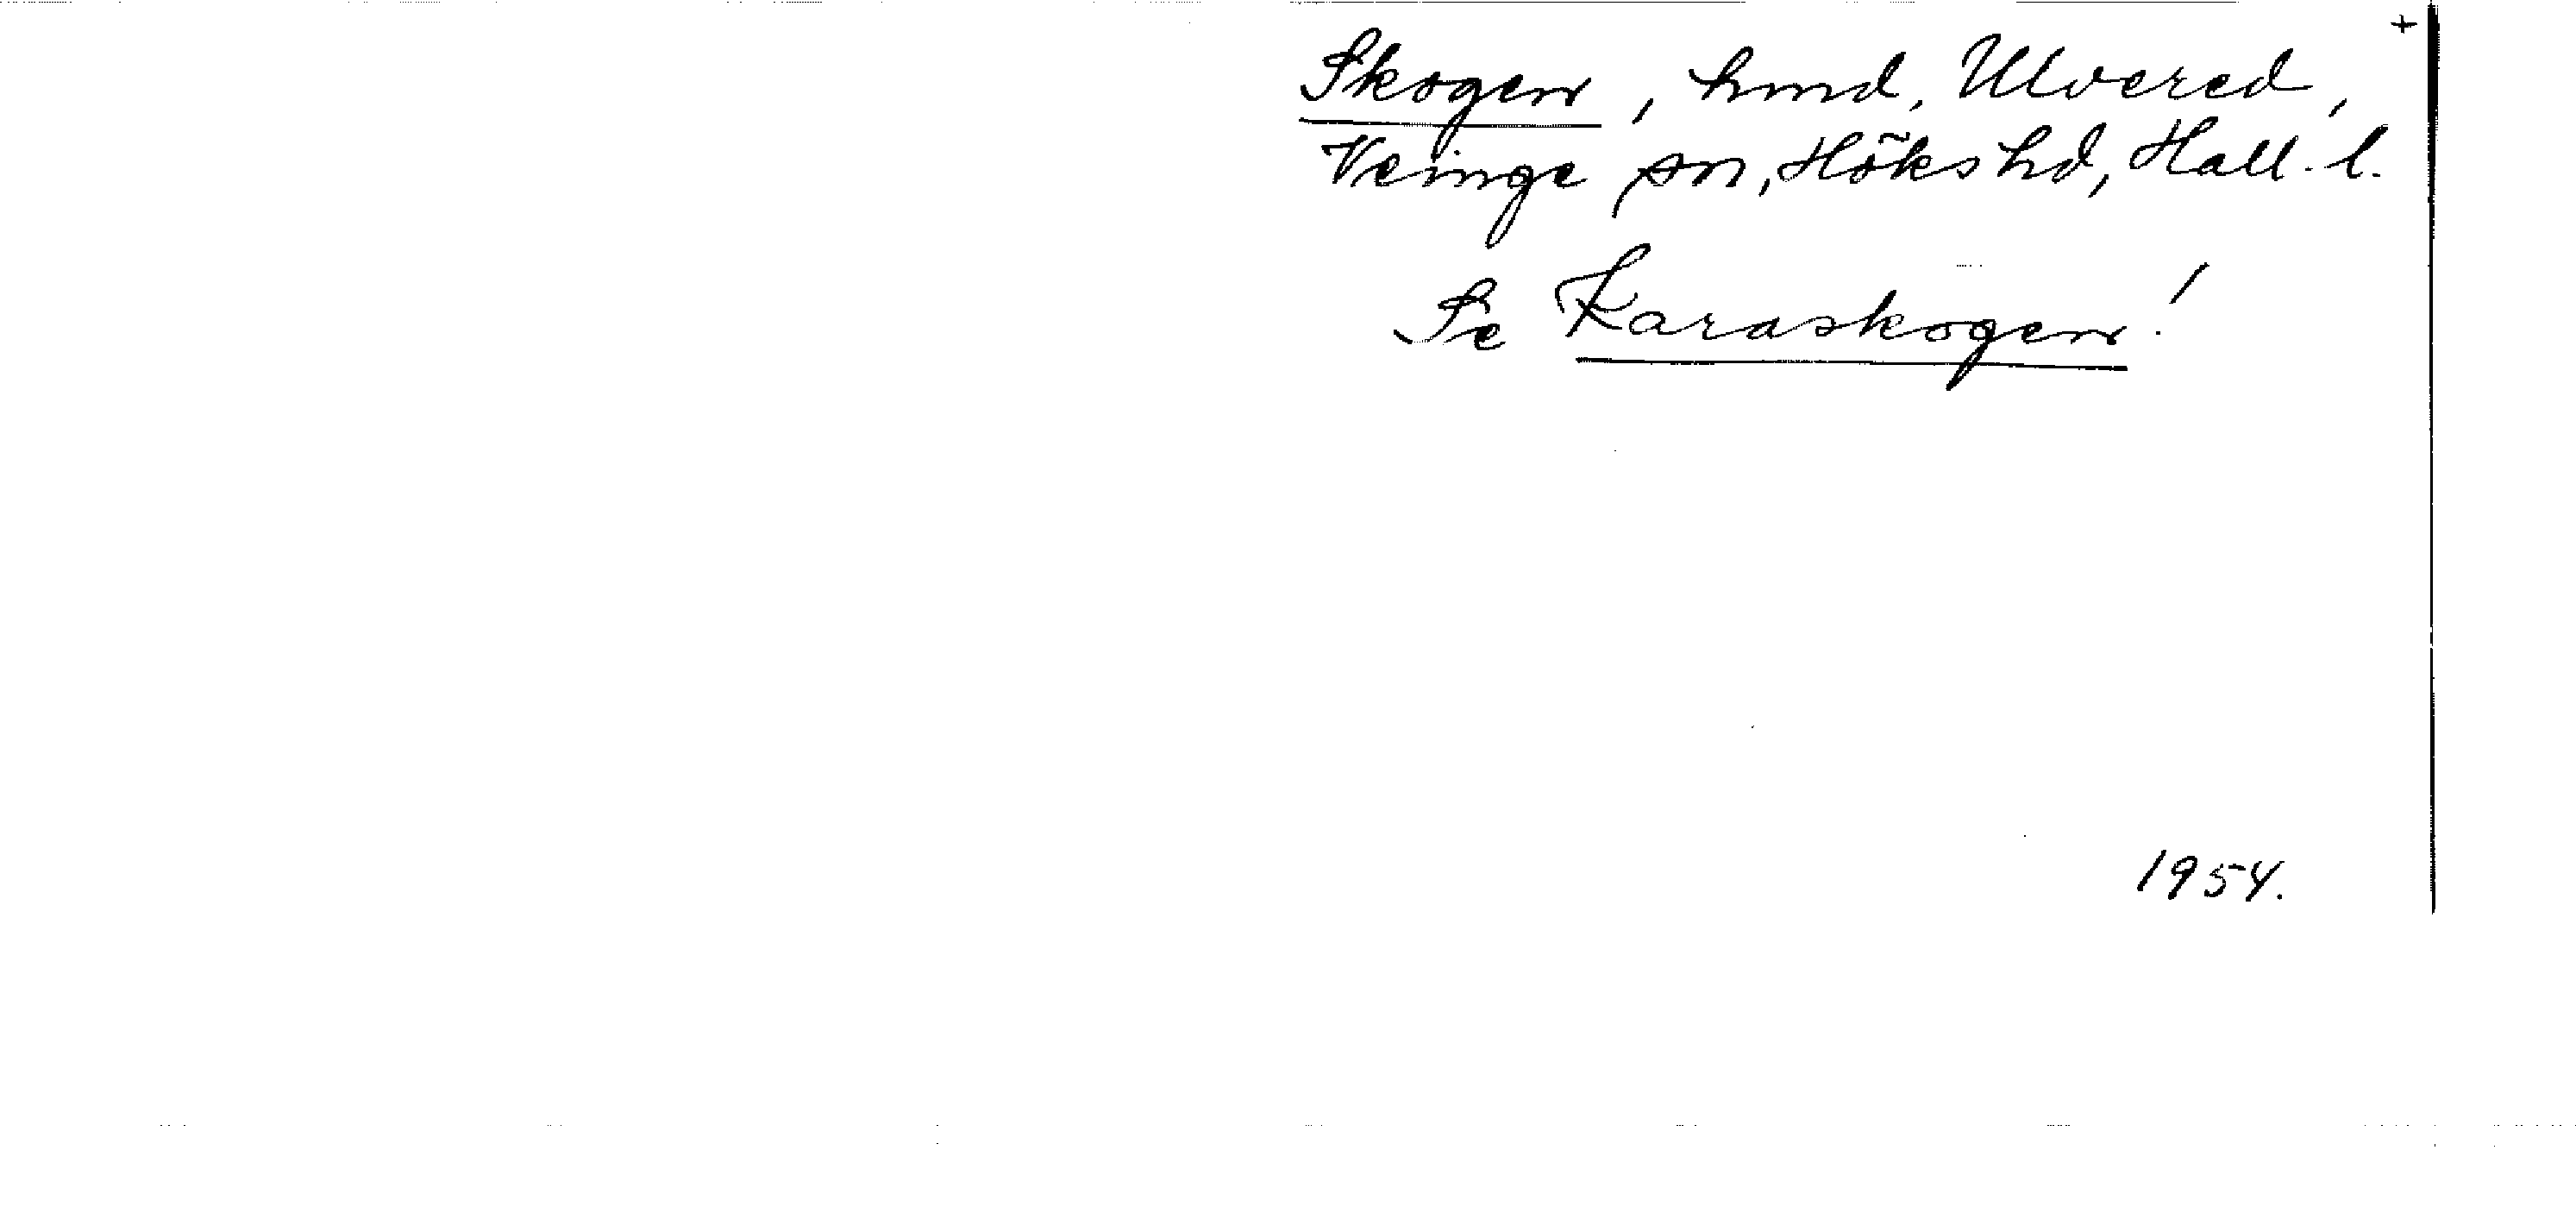 +
Skogen, hmd, Ulvered,
Veinge sn, Höks hd, Hall. l.
Se Karaskogen!
1954.